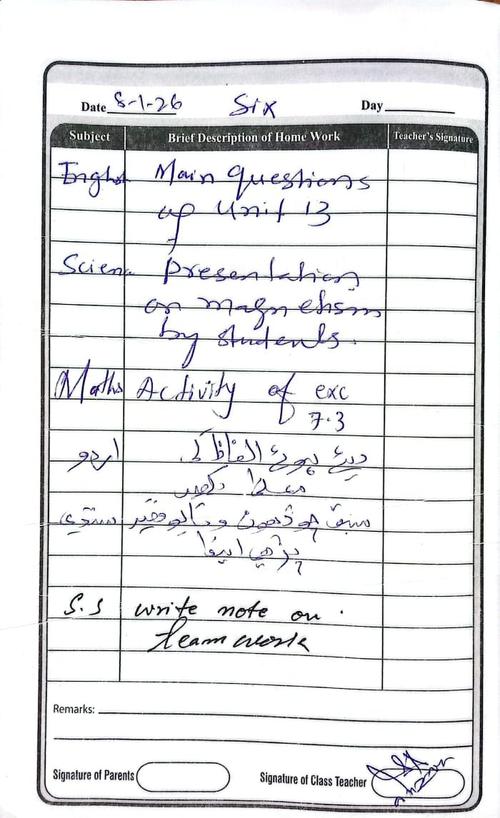 Date 8-1-26 Six Day
Subject Brief Description of Home Work Teacher's Signature
English Main questions
of Unit 13
Science Presentation
on magnetism
by students.
Maths Activity of exc
7.3
اردو دیئے ہوئے الفاظ کی
معنیٰ لکھیں
سبق
S.S write note on
team work
Remarks:
Signature of Parents Signature of Class Teacher